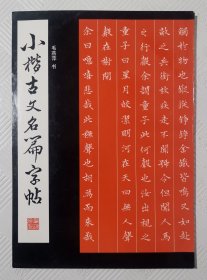 小楷古文名篇字帖
書
觸於物也鏦鏦錚錚金鐵皆鳴又如赴
敵之兵銜枚疾走不聞號令但聞人馬
之行聲余謂童子此何聲也汝出視之
童子曰星月皎潔明河在天四無人聲
聲在樹間
余曰噫嘻悲哉此秋聲也胡為而來哉